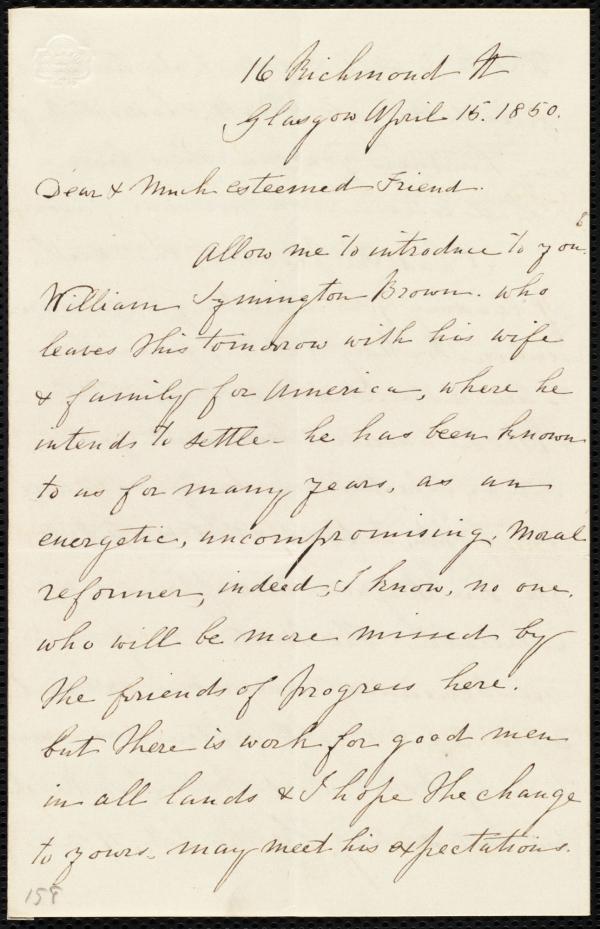 16 Richmond St
Glasgow April 15. 1850.
Dear & Much esteemed Friend.
Allow me to introduce to you
William Symington Brown. who
leaves this tomorrow with his wife
& family for America, where he
intends to settle - he has been known
to us for many years, as an
energetic, uncompromising, Moral
reformer, indeed, I know, no one,
who will be more missed by
the friends of progress here.
but there is work for good men
in all lands & I hope the change
to yours, may meet his expectations.
158